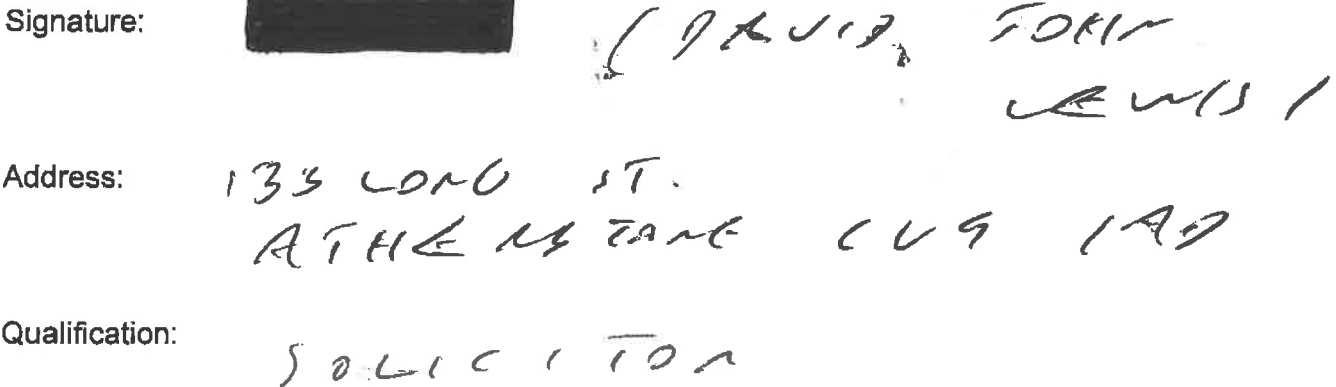 Signature: (DAVID JOHN
LEWIS)
Address: 133 LONG ST.
ATHERSTONE CV9 1AD
Qualification:
SOLICITOR